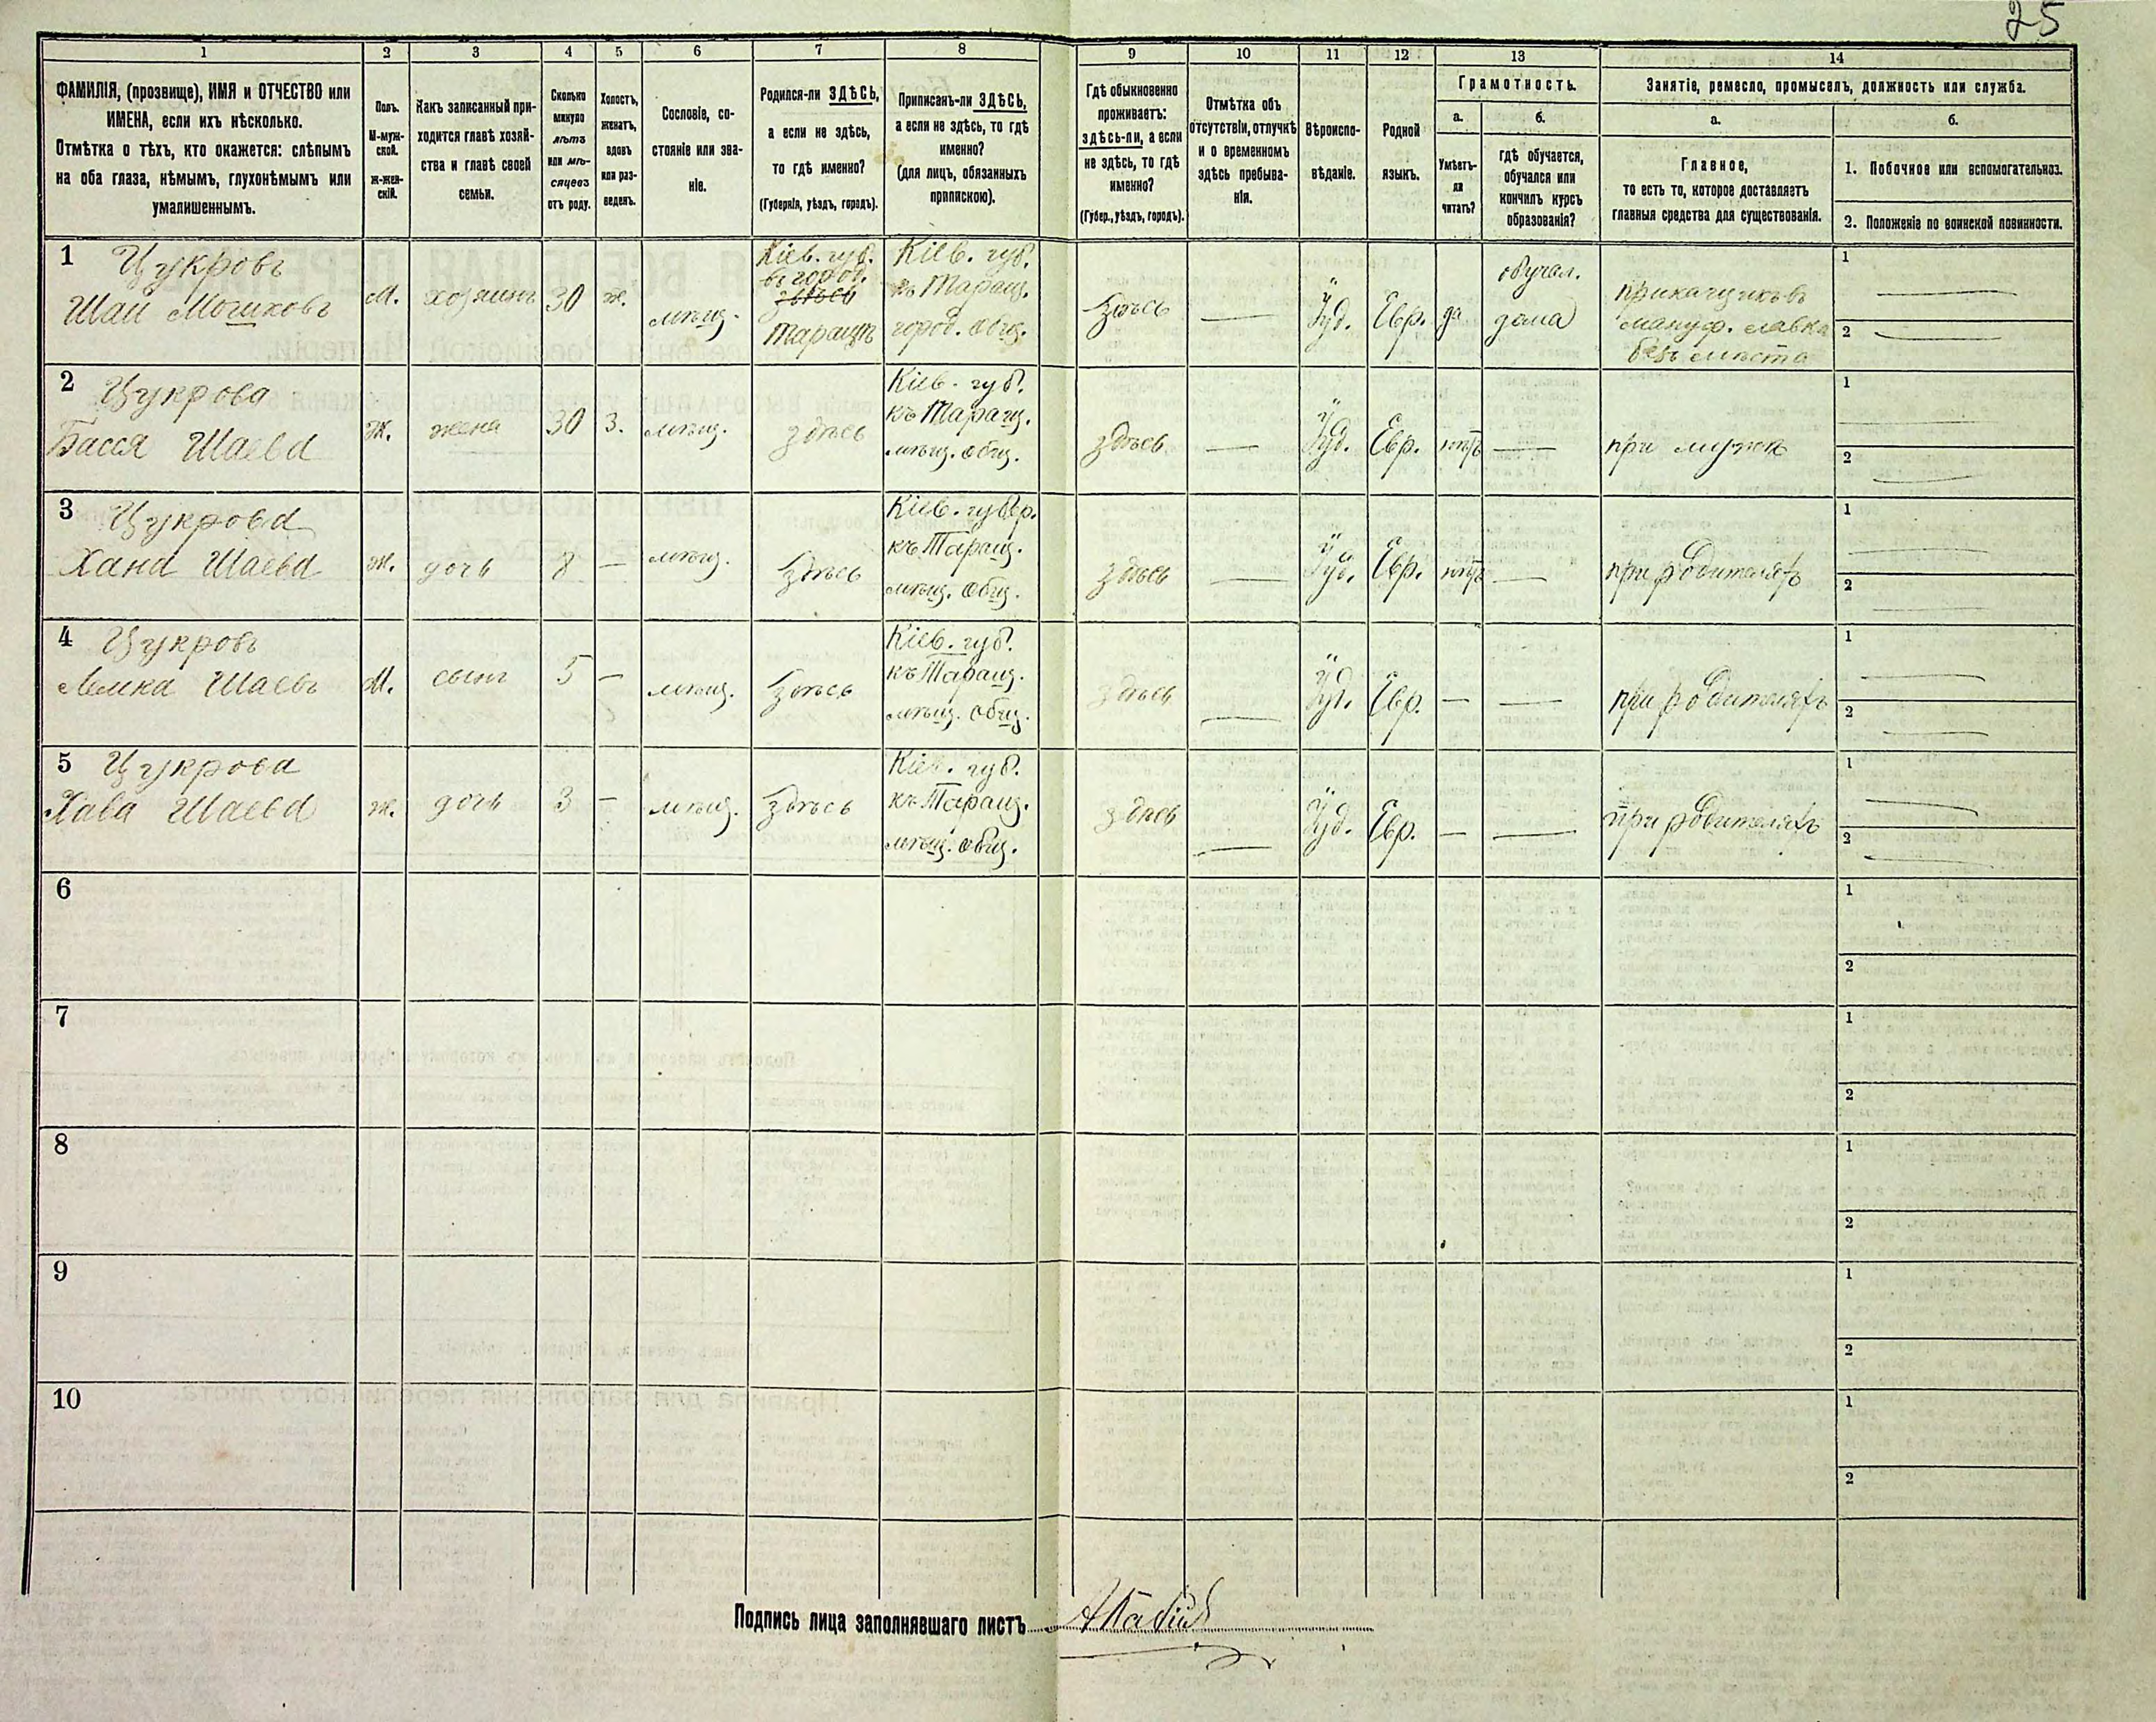 25
1 2 3 4 5 6 7 8 9 10 11 12 13 14
ФАМИЛІЯ, (прозвище), ИМЯ и ОТЧЕСТВО или
ИМЕНА, если ихъ нѣсколько.
Отмѣтка о тѣхъ, кто окажется: слѣпымъ
на оба глаза, нѣмымъ, глухонѣмымъ или
умалишеннымъ.
Полъ.
М-муж-
ской.
ж-жен-
скій.
Какъ записанный при-
ходится главѣ хозяй-
ства и главѣ своей
семьи.
Сколько
минуло
лѣтъ
или мѣ-
сяцевъ
отъ роду.
Холостъ,
женатъ,
вдовъ
или раз-
веденъ.
Сословіе, со-
стояніе или зва-
ніе.
Родился-ли ЗДѢСЬ,
а если не здѣсь,
то гдѣ именно?
(Губернія, уѣздъ, городъ).
Приписанъ-ли ЗДѢСЬ,
а если не здѣсь, то гдѣ
именно?
(для лицъ, обязанныхъ
припискою).
Гдѣ обыкновенно
проживаетъ:
здѣсь-ли, а если
не здѣсь, то гдѣ
именно?
(Губер., уѣздъ, городъ).
Отмѣтка объ
отсутствіи, отлучкѣ
и о временномъ
здѣсь пребыва-
ніи.
Вѣроиспо-
вѣданіе.
Родной
языкъ.
Грамотность.
а.
Умѣетъ-
ли
читать?
б.
гдѣ обучается,
обучался или
кончилъ курсъ
образованія?
Занятіе, ремесло, промыселъ, должность или служба.
а.
Главное,
то есть то, которое доставляетъ
главныя средства для существованія.
б.
1. Побочное или вспомогательное.
2. Положеніе по воинской повинности.
1 Цукровъ
Шаи Мошковъ
М.
хозяинъ
30
ж.
мѣщ.
Кіев. губ.
въ город.
здѣсь
Таращѣ
Кіев. губ.
къ Таращ.
город. общ.
здѣсь
—
Іуд.
Евр.
да
обучал.
дома
прикащикъ въ
мануф. лавкѣ
безъ мѣста
1 —
2 —
2 Цукрова
Басся Шаева
Ж.
жена
30
З.
мѣщ.
здѣсь
Кіев. губ.
къ Таращ.
мѣщ. общ.
здѣсь
—
Іуд.
Евр.
нѣтъ
—
при мужѣ
1 —
2 —
3 Цукрова
Хана Шаева
ж.
дочь
8
—
мѣщ.
здѣсь
Кіев. губер.
къ Таращ.
мѣщ. общ.
здѣсь
—
Іуд.
Евр.
нѣтъ
—
при родителяхъ
1 —
2 —
4 Цукровъ
Шаевъ
М.
сынъ
5
—
мѣщ.
здѣсь
Кіев. губ.
къ Таращ.
мѣщ. общ.
здѣсь
—
Іуд.
Евр.
—
—
при родителяхъ
1 —
2 —
5 Цукрова
Хава Шаева
ж.
дочь
3
—
мѣщ.
здѣсь
Кіев. губ.
къ Таращ.
мѣщ. общ.
здѣсь
—
Іуд.
Евр.
—
—
при родителяхъ
1 —
2 —
6
1
2
7
1
2
8
1
2
9
1
2
10
1
2
Подпись лица заполнявшаго листъ